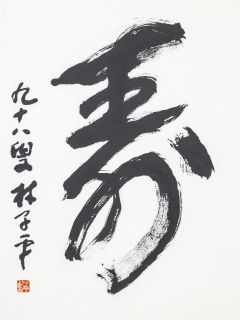 寿
九十八叟林子平